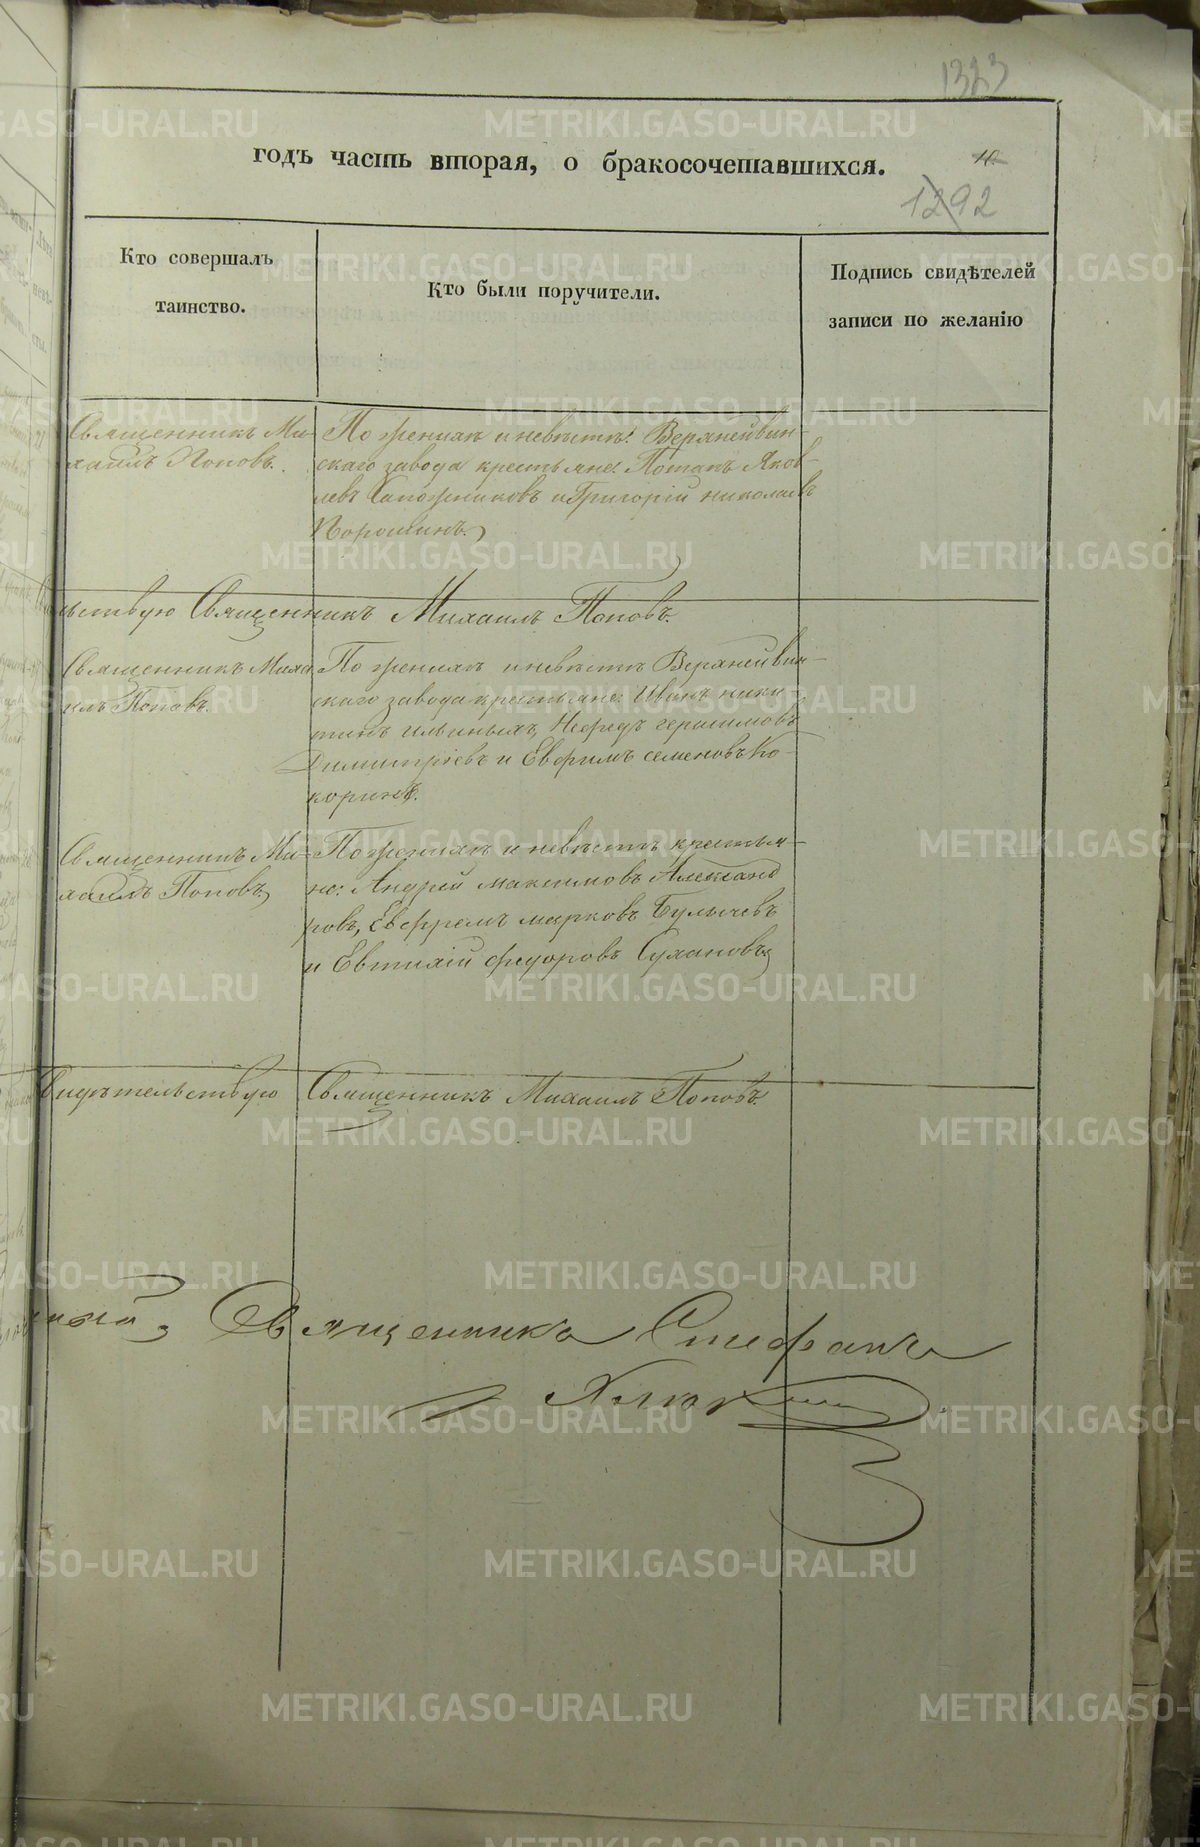 1323
годъ часть вторая, о бракосочетавшихся.
10
1292
Кто совершалъ
таинство.
Кто были поручители.
Подпись свидѣтелей
записи по желанію
Священникъ Ми-
хаилъ Поповъ.
По женихѣ и невѣстѣ: Верхнейвин-
скаго завода крестьяне: Потапъ Яков-
левъ Сапожниковъ и Григорій Николаевъ
Порошинъ.
льствую Священникъ Михаилъ Поповъ.
Священникъ Миха
илъ Поповъ.
По женихѣ и невѣстѣ Верхнейвин-
скаго завода крестьяне: Иванъ Ники
тинъ Ильиныхъ, Нефедъ Герасимовъ
Димитріевъ и Евфимъ Семеновъ Ко-
коринъ.
Священникъ Ми-
хаилъ Поповъ
По женихѣ и невѣстѣ крестья-
не: Андрей Максимовъ Александ
ровъ, Ефремъ Марковъ Булычевъ
и Евтихій Федоровъ Сухановъ
Свидѣтельствую Священникъ Михаилъ Поповъ.
Священника Стефана
METRIKI.GASO-URAL.RU